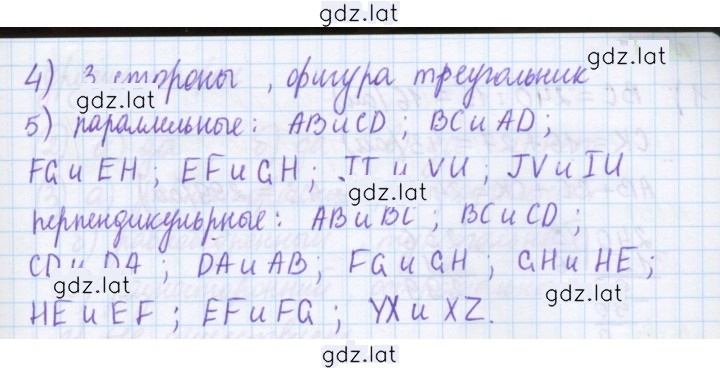 gdz.lat
gdz.lat
4) 3 стороны, фигура треугольник
gdz.lat
5) параллельные: AB и CD; BC и AD;
FG и EH; EF и GH; JI и VU; JV и IU
gdz.lat
перпендикулярные: AB и BC; BC и CD;
CD и DA; DA и AB; FG и GH; GH и HE;
gdz.lat
gdz.lat
HE и EF; EF и FG; YX и XZ.
gdz.lat